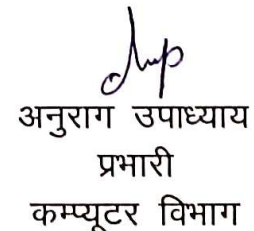 अनुराग उपाध्याय
प्रभारी
कम्प्यूटर विभाग